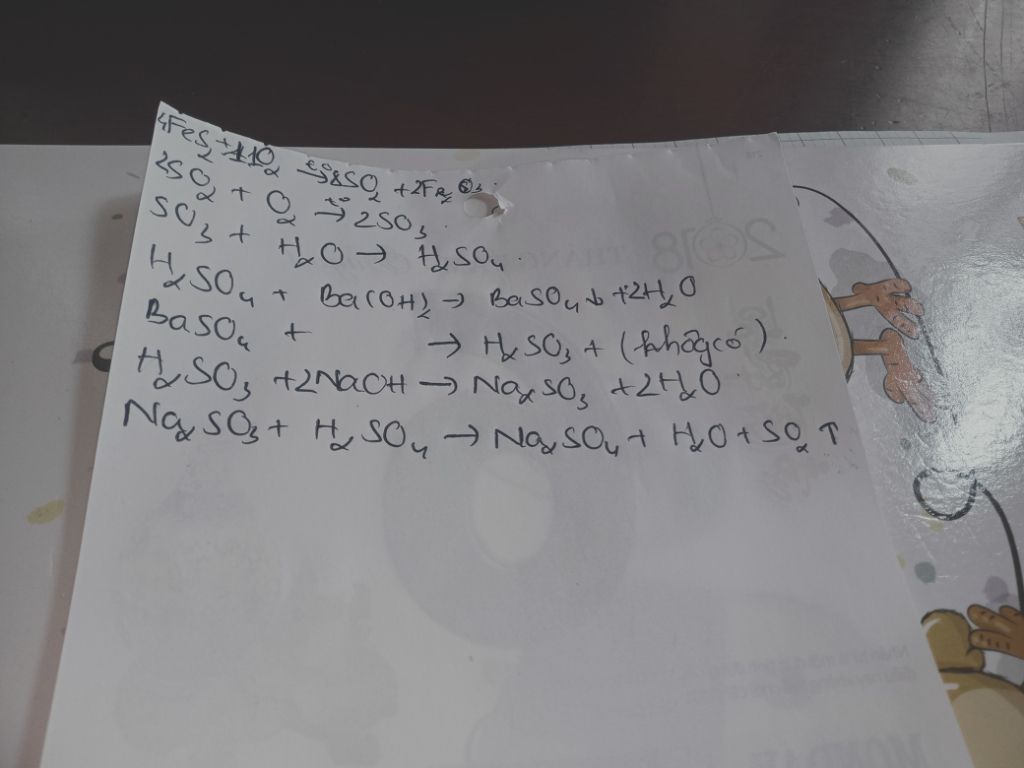 4FeS₂ + 11O₂ →t° 8SO₂ + 2Fe₂O₃.
2SO₂ + O₂ →t° 2SO₃.
SO₃ + H₂O → H₂SO₄.
H₂SO₄ + Ba(OH)₂ → BaSO₄↓ + 2H₂O
BaSO₄ + → H₂SO₃ + (không có).
H₂SO₃ + 2NaOH → Na₂SO₃ + 2H₂O
Na₂SO₃ + H₂SO₄ → Na₂SO₄ + H₂O + SO₂ ↑
2018
THÁNG